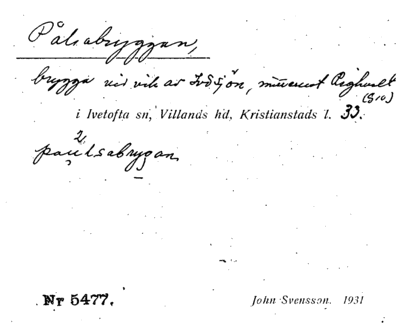 Pålsabryggan,
brygga vid vik av Ivösjön, mittemot
(S10)
i Ivetofta sn, Villands hd, Kristianstads l. 33.
2
paulsabrygan
Nr 5477.
John Svensson. 1931